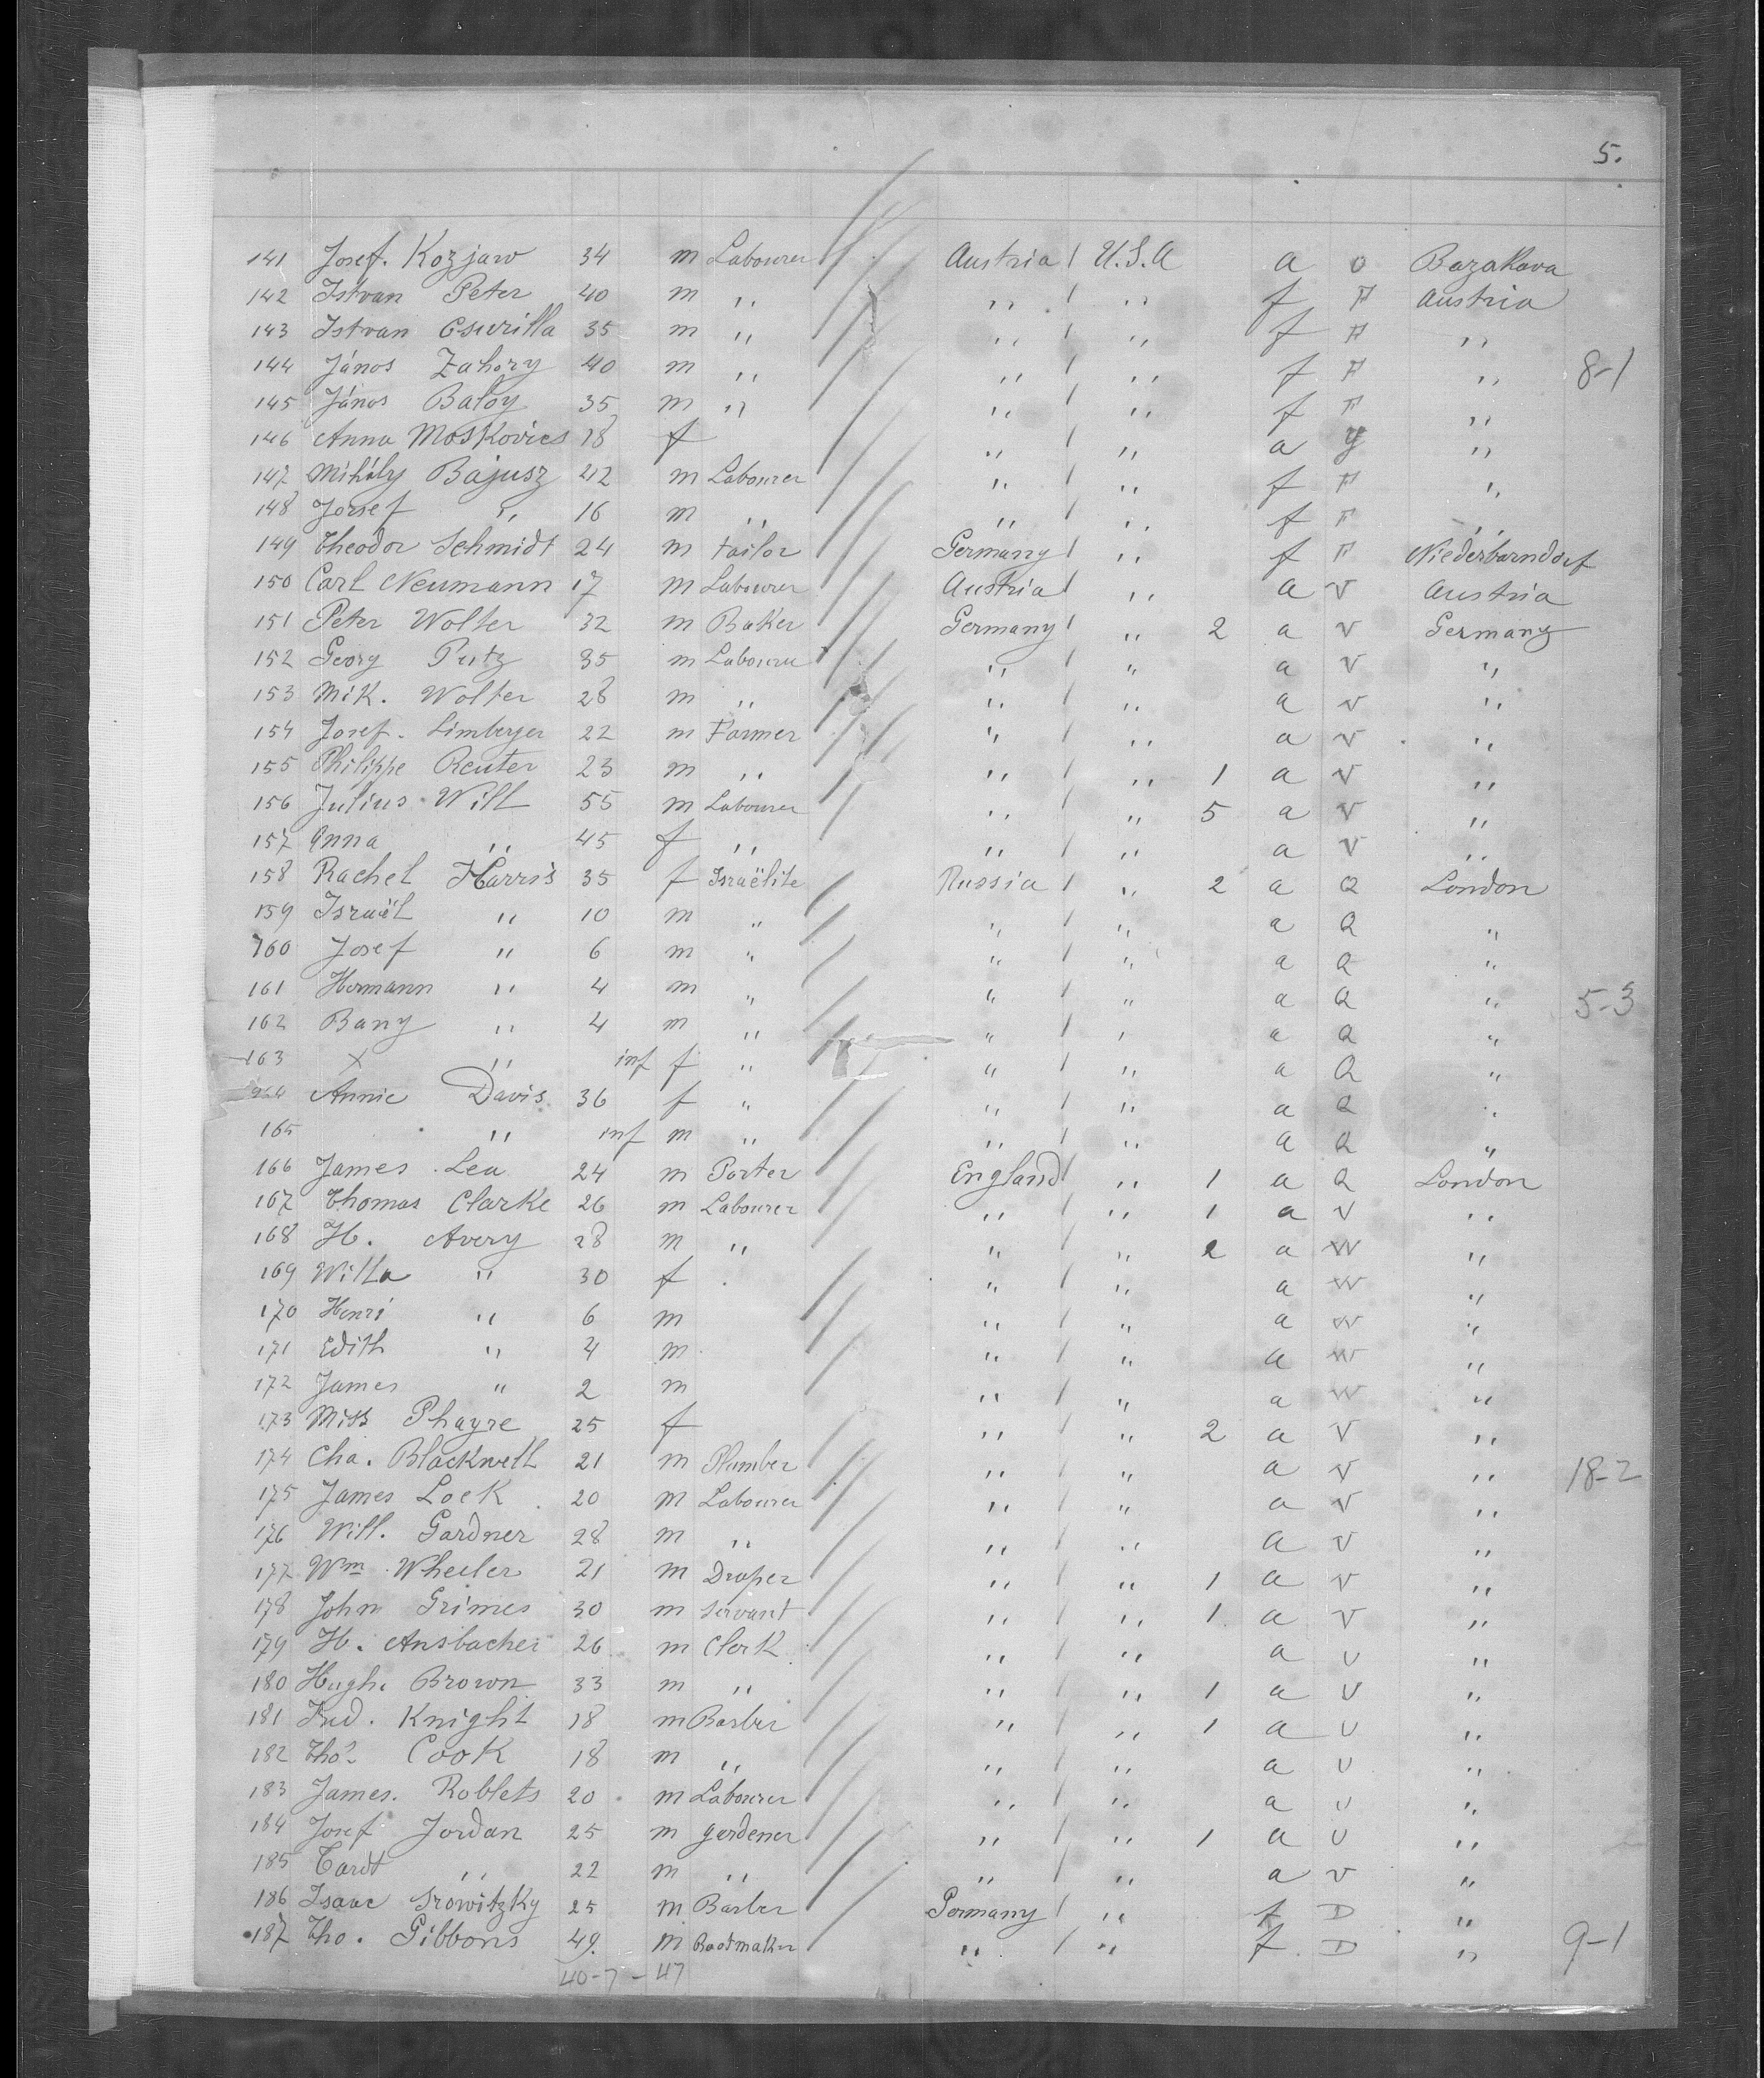 5.
141 Josef. Kozjaw 34 m Labourer Austria / U.S.A a o Bazakava
142 Istvan Peter 40 m ,, ,, / ,, f F Austria
143 Istvan Csurilla 35 m ,, ,, / ,, f F ,,
144 János Zahory 40 m ,, ,, / ,, f F ,, 8-1
145 János Baloy 35 m ,, ,, / ,, f F ,,
146 Anna Moskovics 18 f ,, / ,, a y ,,
147 Mihály Bajusz 42 m Labourer ,, / ,, f F ,,
148 Jorsef ,, 16 m ,, ,, / ,, f F ,,
149 Theodor Schmidt 24 m tailor Germany / ,, f F Niederbarndorf
150 Carl Neumann 17 m Labourer Austria / ,, a V Austria
151 Peter Wolter 32 m Baker Germany / ,, 2 a V Germany
152 Georg Putz 35 m Labourer ,, / ,, a V ,,
153 Mik. Wolter 28 m ,, ,, / ,, a V ,,
154 Josef. Limberger 22 m Farmer ,, / ,, a V ,,
155 Philippe Reuter 23 m ,, ,, / ,, 1 a V ,,
156 Julius Will 55 m Labourer ,, / ,, 5 a V ,,
157 Anna ,, 45 f ,, ,, / ,, a V ,,
158 Rachel Harris 35 f Israëlite Russia / ,, 2 a Q London
159 Israël ,, 10 m ,, ,, / ,, a Q ,,
160 Josef ,, 6 m ,, ,, / ,, a Q ,,
161 Hermann ,, 4 m ,, ,, / ,, a Q ,, 5-3
162 Bany ,, 4 m ,, ,, / , a Q ,,
163 X ,, inf f ,, ,, / ,, a Q ,,
164 Annie Davis 36 f ,, ,, / ,, a Q ,,
165 ,, inf m ,, ,, / ,, a Q ,,
166 James Lea 24 m Porter England / ,, 1 a Q London
167 Thomas Clarke 26 m Labourer ,, / ,, 1 a V ,,
168 H. Avery 28 m ,, ,, / ,, 2 a W ,,
169 Willa ,, 30 f ,, / ,, a W ,,
170 Henri ,, 6 m ,, / ,, a W ,,
171 Edith ,, 4 m ,, / ,, a W ,,
172 James ,, 2 m ,, / ,, a W ,,
173 Miss Phayre 25 f ,, / ,, 2 a V ,,
174 Cha. Blackwell 21 m Plumber ,, / ,, a V ,, 18-2
175 James Lock 20 m Labourer ,, / ,, a V ,,
176 Will. Gardner 28 m ,, ,, / ,, a V ,,
177 Wm Wheeler 21 m Draper ,, / ,, 1 a V ,,
178 John Grimes 30 m servant ,, / ,, 1 a V ,,
179 H. Ansbacher 26 m Clerk ,, / ,, a U ,,
180 Hugh. Brown 33 m ,, ,, / ,, 1 a U ,,
181 Fred. Knight 18 m Barber ,, / ,, 1 a U ,,
182 Thos. Cook 18 m ,, ,, / ,, a U ,,
183 James. Roblets 20 m Labourer ,, / ,, a U ,,
184 Josef Jordan 25 m gardener ,, / ,, 1 a U ,,
185 ,, 22 m ,, ,, / ,, a V ,,
186 Isaac Srowitzky 25 m Barber Germany / ,, f D ,,
187 Tho. Gibbons 49. m Bootmaker ,, / ,, f D ,, 9-1
40-7-47